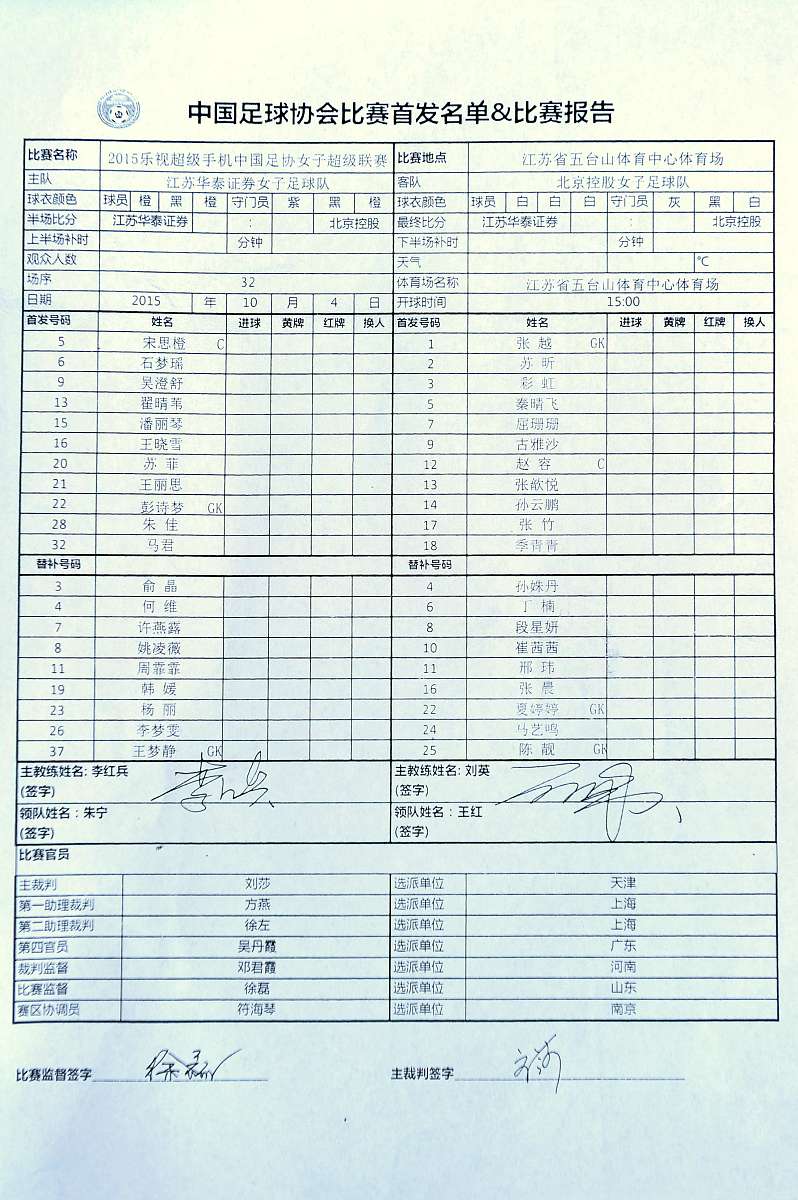 中国足球协会比赛首发名单&比赛报告
比赛名称 2015乐视超级手机中国足协女子超级联赛 比赛地点 江苏省五台山体育中心体育场
主队 江苏华泰证券女子足球队 客队 北京控股女子足球队
球衣颜色 球员 橙 黑 橙 守门员 紫 黑 橙 球衣颜色 球员 白 白 白 守门员 灰 黑 白
半场比分 江苏华泰证券 : 北京控股 最终比分 江苏华泰证券 : 北京控股
上半场补时 分钟 下半场补时 分钟
观众人数 天气 ℃
场序 32 体育场名称 江苏省五台山体育中心体育场
日期 2015 年 10 月 4 日 开球时间 15:00
首发号码 姓名 进球 黄牌 红牌 换人 首发号码 姓名 进球 黄牌 红牌 换人
5 宋思橙 C 1 张越 GK
6 石梦瑶 2 苏昕
9 吴澄舒 3 彩虹
13 翟晴苇 5 秦晴飞
15 潘丽琴 7 屈珊珊
16 王晓雪 9 古雅沙
20 苏菲 12 赵容 C
21 王丽思 13 张歆悦
22 彭诗梦 GK 14 孙云鹏
28 朱佳 17 张竹
32 马君 18 季青青
替补号码 替补号码
3 俞晶 4 孙姝丹
4 何维 6 丁楠
7 许燕露 8 段星妍
8 姚凌薇 10 崔茜茜
11 周霏霏 11 邢玮
19 韩媛 16 张晨
23 杨丽 22 夏婷婷 GK
26 李梦雯 24 马艺鸣
37 王梦静 GK 25 陈靓 GK
主教练姓名: 李红兵 主教练姓名: 刘英
(签字) (签字)
领队姓名: 朱宁 领队姓名: 王红
(签字) (签字)
比赛官员
主裁判 刘莎 选派单位 天津
第一助理裁判 方燕 选派单位 上海
第二助理裁判 徐左 选派单位 上海
第四官员 吴丹霞 选派单位 广东
裁判监督 邓君霞 选派单位 河南
比赛监督 徐磊 选派单位 山东
赛区协调员 符海琴 选派单位 南京
比赛监督签字 徐磊 主裁判签字